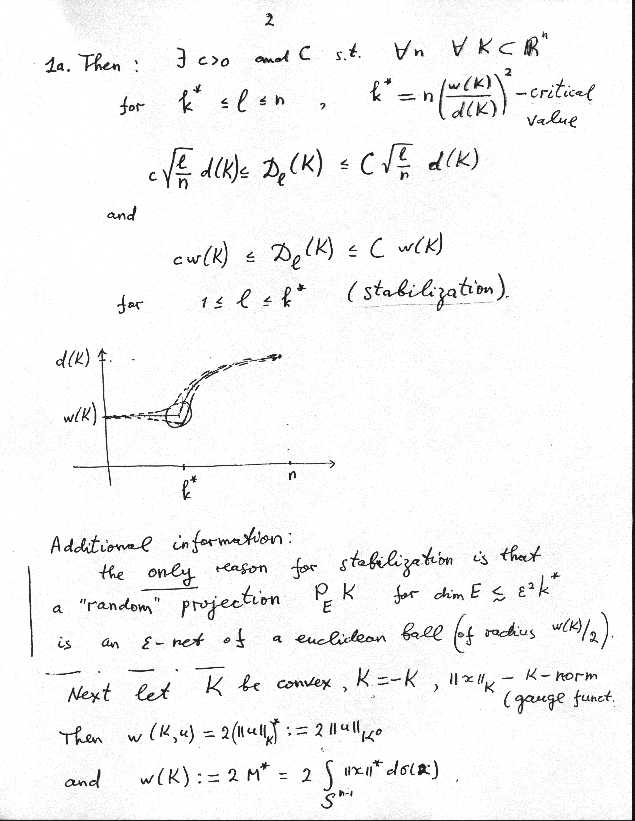 2
1a. Then : ∃ c>0 and C s.t. ∀n ∀ K ⊂ ℝⁿ
for k* ≤ l ≤ n , k* = n (w(K)/d(K))² – critical value
c √(l/n) d(K) ≤ D_l(K) ≤ C √(l/n) d(K)
and
c w(K) ≤ D_l(K) ≤ C w(K)
for 1 ≤ l ≤ k* (stabilization).
d(K)
w(K)
k* n
Additional information:
the only reason for stabilization is that
a "random" projection P_E K for dim E ≲ ε²k*
is an ε-net of a euclidean ball (of radius w(K)/2).
Next let K be convex, K=-K, ||x||_K – K-norm
(gauge funct.
Then w(K,u) = 2(||u||_K)* := 2||u||_K°
and w(K) := 2 M* = 2 ∫_{Sⁿ⁻¹} ||x||* dσ(x) .